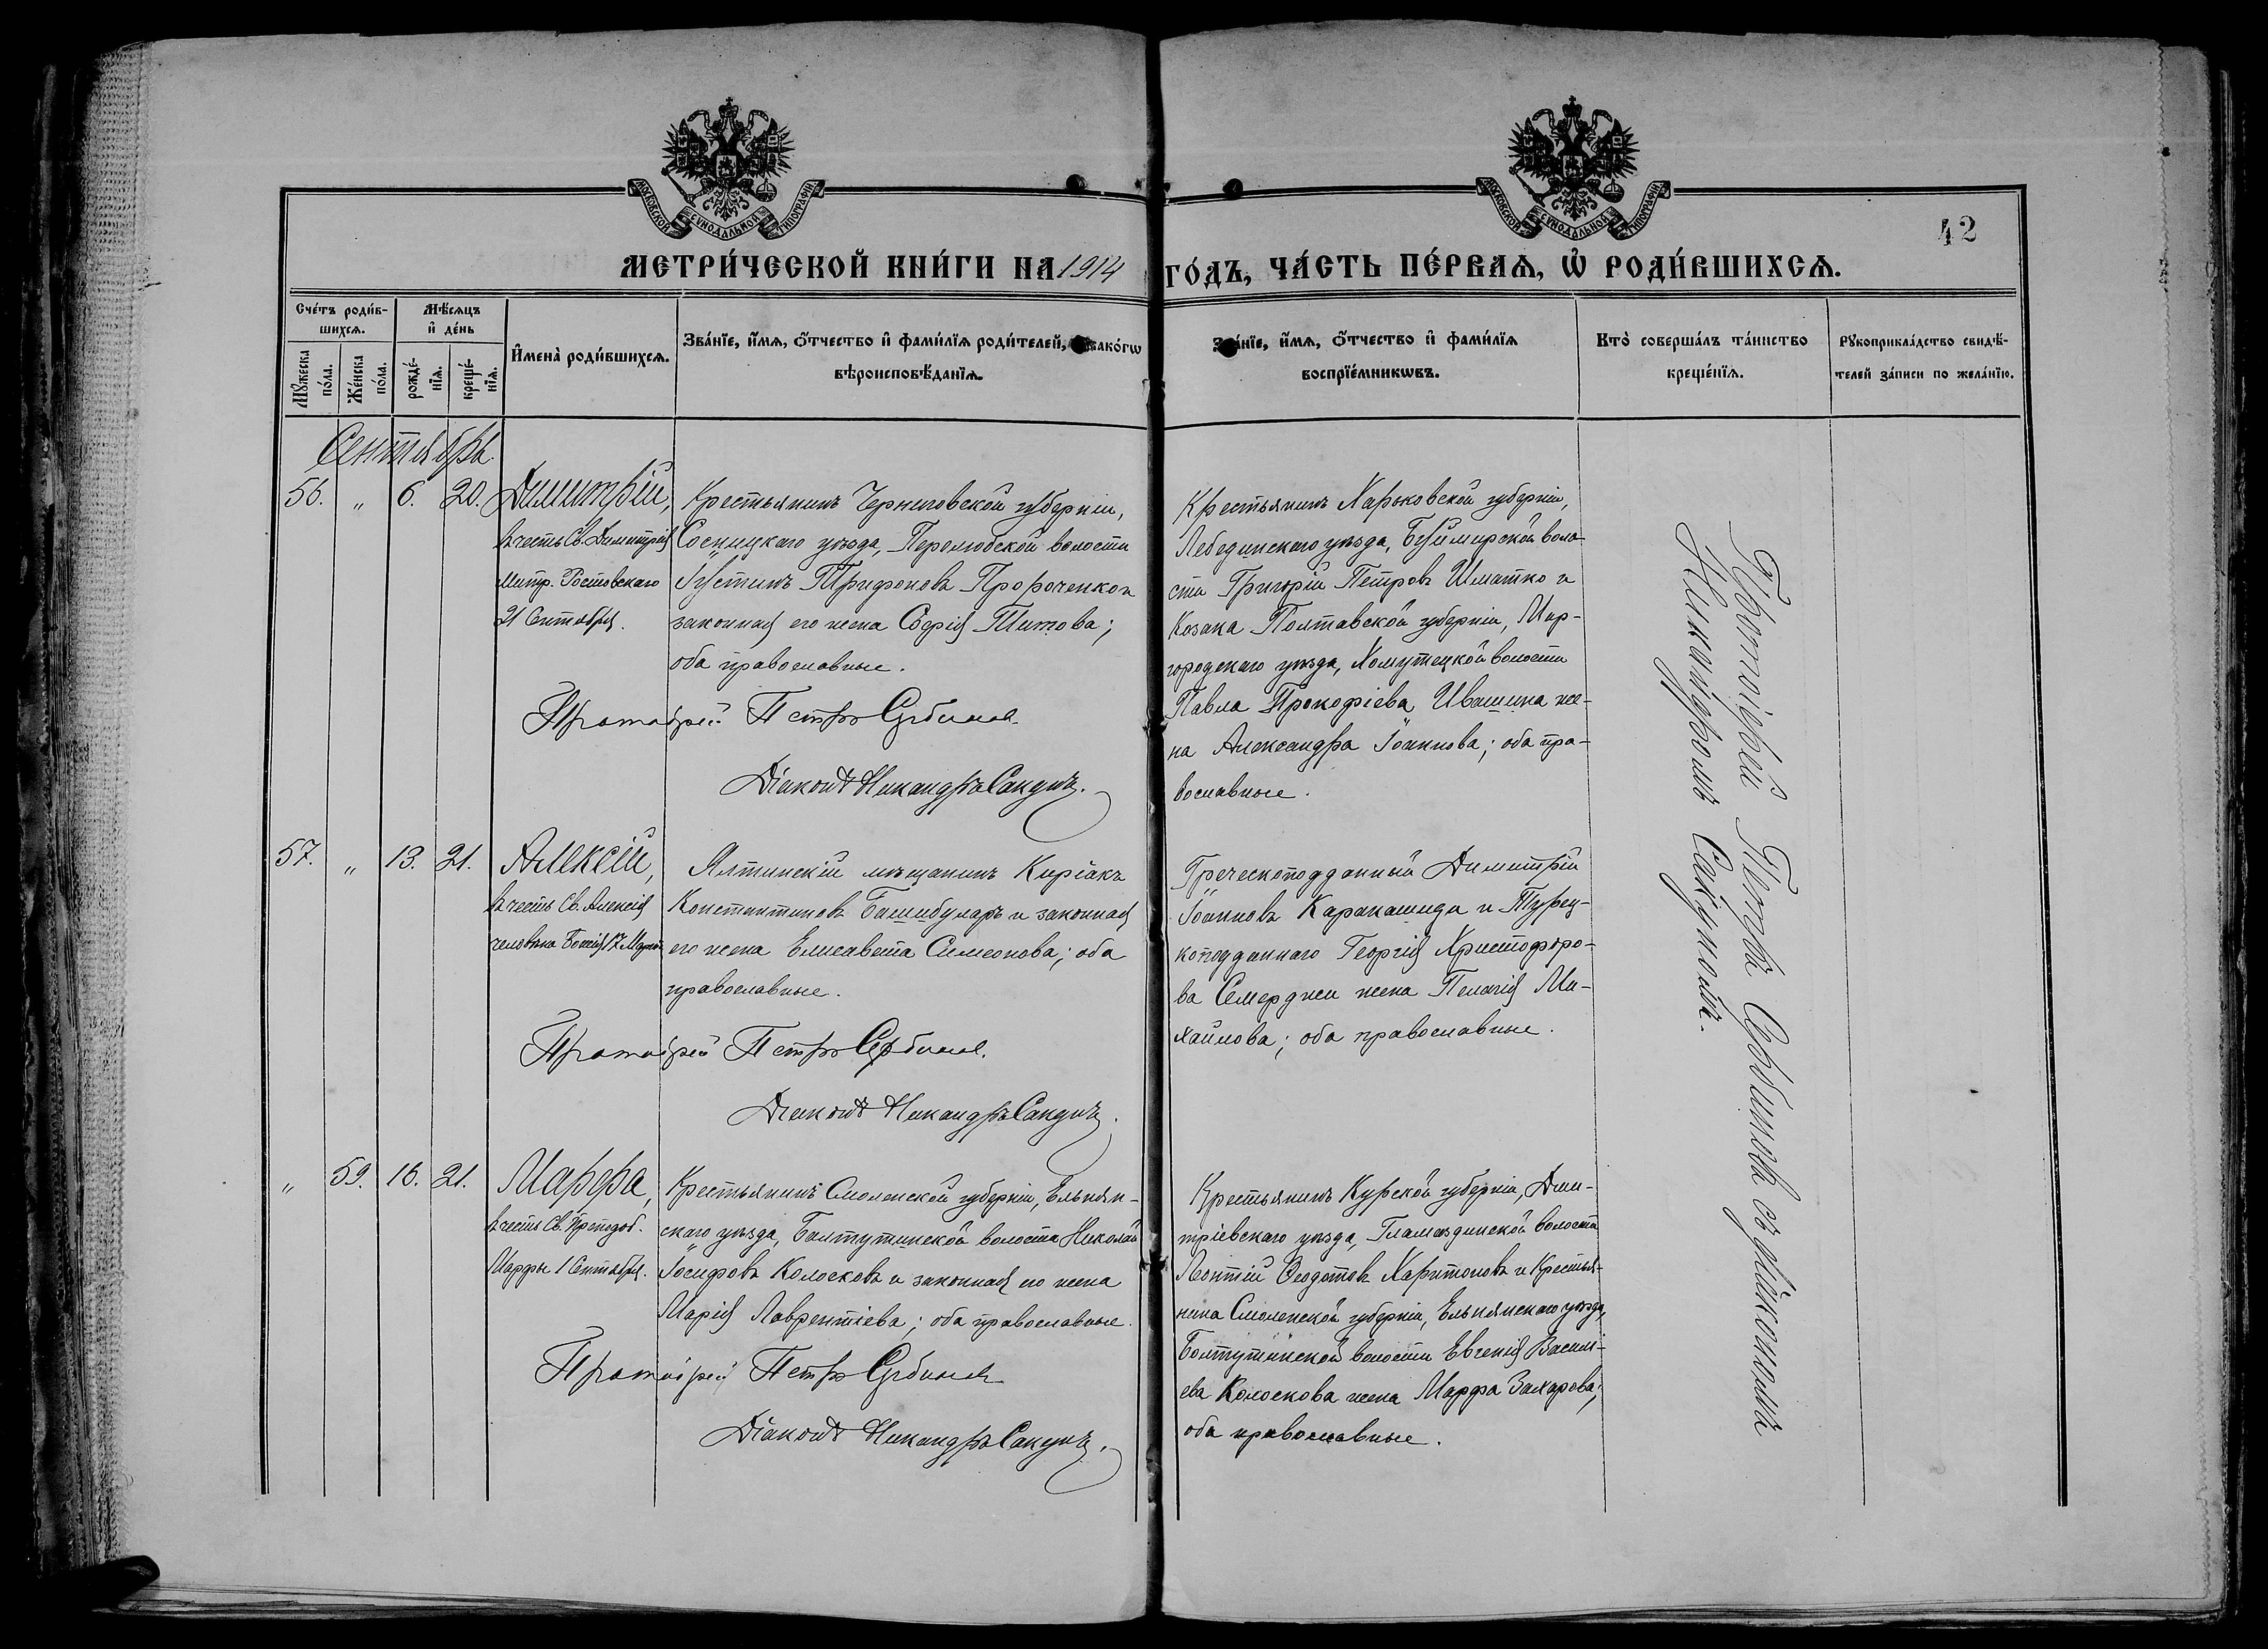 МОСКОВСКОЙ СУНОДАЛЬНОЙ ТИПОГРАФІИ
МОСКОВСКОЙ СУНОДАЛЬНОЙ ТИПОГРАФІИ
42
МЕТРИ́ЧЕСКОЙ КНИ́ГИ НА 1914 ГО́ДЪ, ЧА́СТЬ ПЕ́РВАѦ, Ѡ҆ РОДИ́ВШИХСѦ.
Сче́тъ роди́в-
шихсѧ.
Мꙋжеска по́ла.
Же́нска по́ла.
Мѣ́сѧцъ
и҆ де́нь
рожде́-
нїѧ.
креще́-
нїѧ.
И҆мена̀ роди́вшихсѧ.
Зва́нїе, и҆́мѧ, ѻ҆́тчество и҆ фами́лїѧ роди́телей, и҆ како́гѡ
вѣроисповѣ́данїѧ.
Зва́нїе, и҆́мѧ, ѻ҆́тчество и҆ фами́лїѧ
воспрїе́мникѡвъ.
Кто̀ соверша́лъ та́инство
креще́нїѧ.
Рꙋкоприкла́дство свидѣ́-
телей за́писи по жела́нїю.
Сентябрь
56. „ 6. 20. Димитрій,
въ честь Св. Димитрія
Митр. Ростовскаго
21 Сентября.
Крестьянинъ Черниговской губерніи,
Сосницкаго уѣзда, Перелюбской волости
Іустинъ Трифоновъ Пророченко и
законная его жена Софія Титова;
оба православные.
Протоіерей Петръ Сербиновъ
Діаконъ Никандръ Сакунъ.
Крестьянинъ Харьковской губерніи,
Лебединскаго уѣзда, Буймирской воло-
сти Григорій Петровъ Шматко и
Козака Полтавской губерніи, Мир-
городскаго уѣзда, Хомутецкой волости
Павла Прокофіева Ивашина же-
на Александра Іоаннова; оба пра-
вославные.
57. „ 13. 21. Алексій,
въ честь Св. Алексія
человѣка Божія 17 Марта
Ялтинскій мѣщанинъ Киріакъ
Константиновъ Башибуларъ и законная
его жена Елисавета Симеонова; оба
православные.
Протоіерей Петръ Сербиновъ.
Діаконъ Никандръ Сакунъ.
Греческоподданный Димитрій
Іоанновъ Каракашиди и Турец-
коподданнаго Георгія Христофоро-
ва Семерджи жена Пелагія Ми-
хайлова; оба православные.
„ 59. 16. 21. Марфа,
въ честь Св. Преподоб.
Марфы 1 Сентября.
Крестьянинъ Смоленской губерніи, Ельнин-
скаго уѣзда, Балтутинской волости Николай
Іосифовъ Колосковъ и законная его жена
Марія Лаврентіева; оба православные.
Протоіерей Петръ Сербиновъ
Діаконъ Никандръ Сакунъ.
Крестьянинъ Курской губерніи, Дми-
тріевскаго уѣзда, Гламаздинской волости
Леонтій Ѳеодотовъ Харитоновъ и Крестья-
нина Смоленской губерніи, Ельнинскаго уѣзда,
Болтутинской волости Евгенія Василі-
ева Колоскова жена Марфа Захарова;
оба православные.
Протоіерей Петръ Сербиновъ съ діакономъ
Никандромъ Сакуномъ.